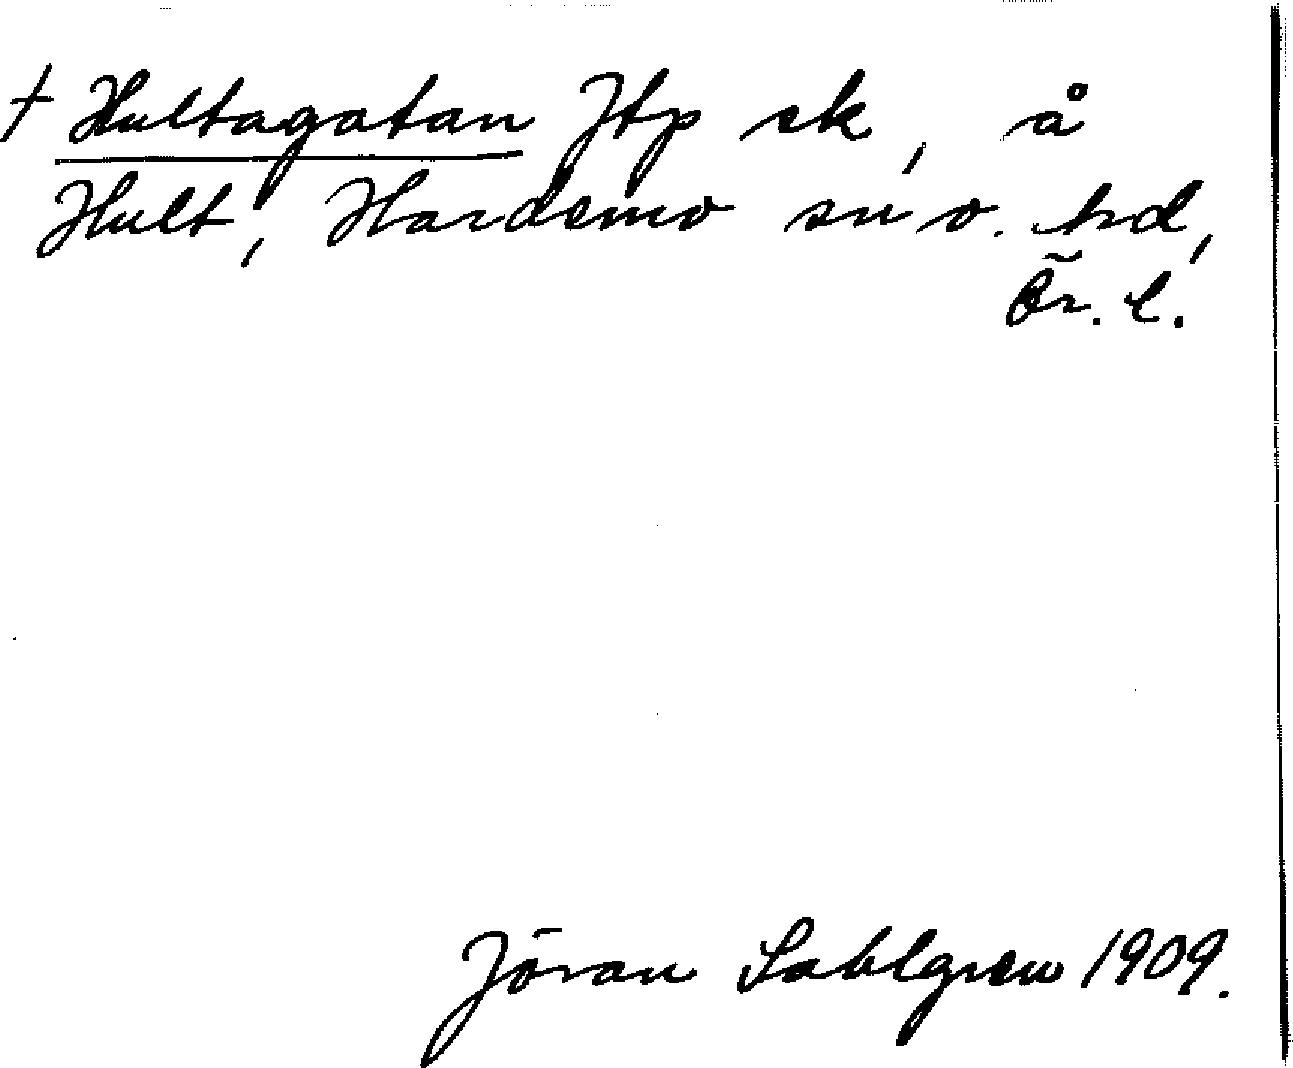 † Hultagatan Jtp sk, å
Hult, Hardemo sn o. hd,
Ör. l.
Jöran Sahlgren 1909.